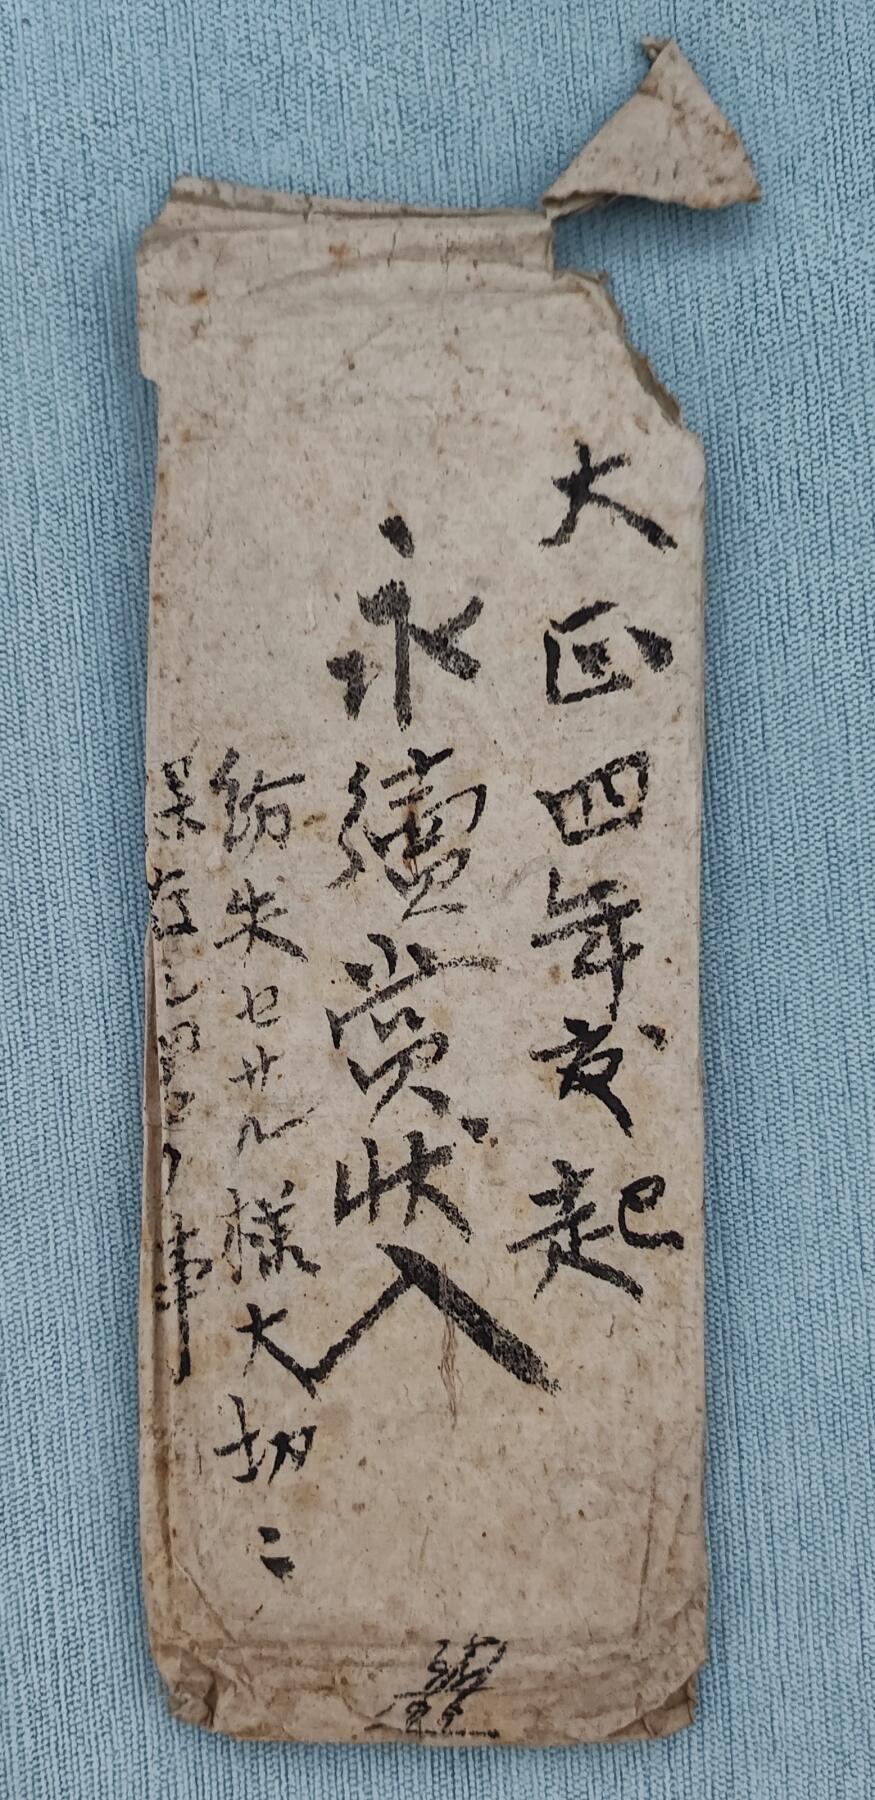 大正四年発起
永續賞状入
紛失セザル様大切ニ
保存シ置ク事